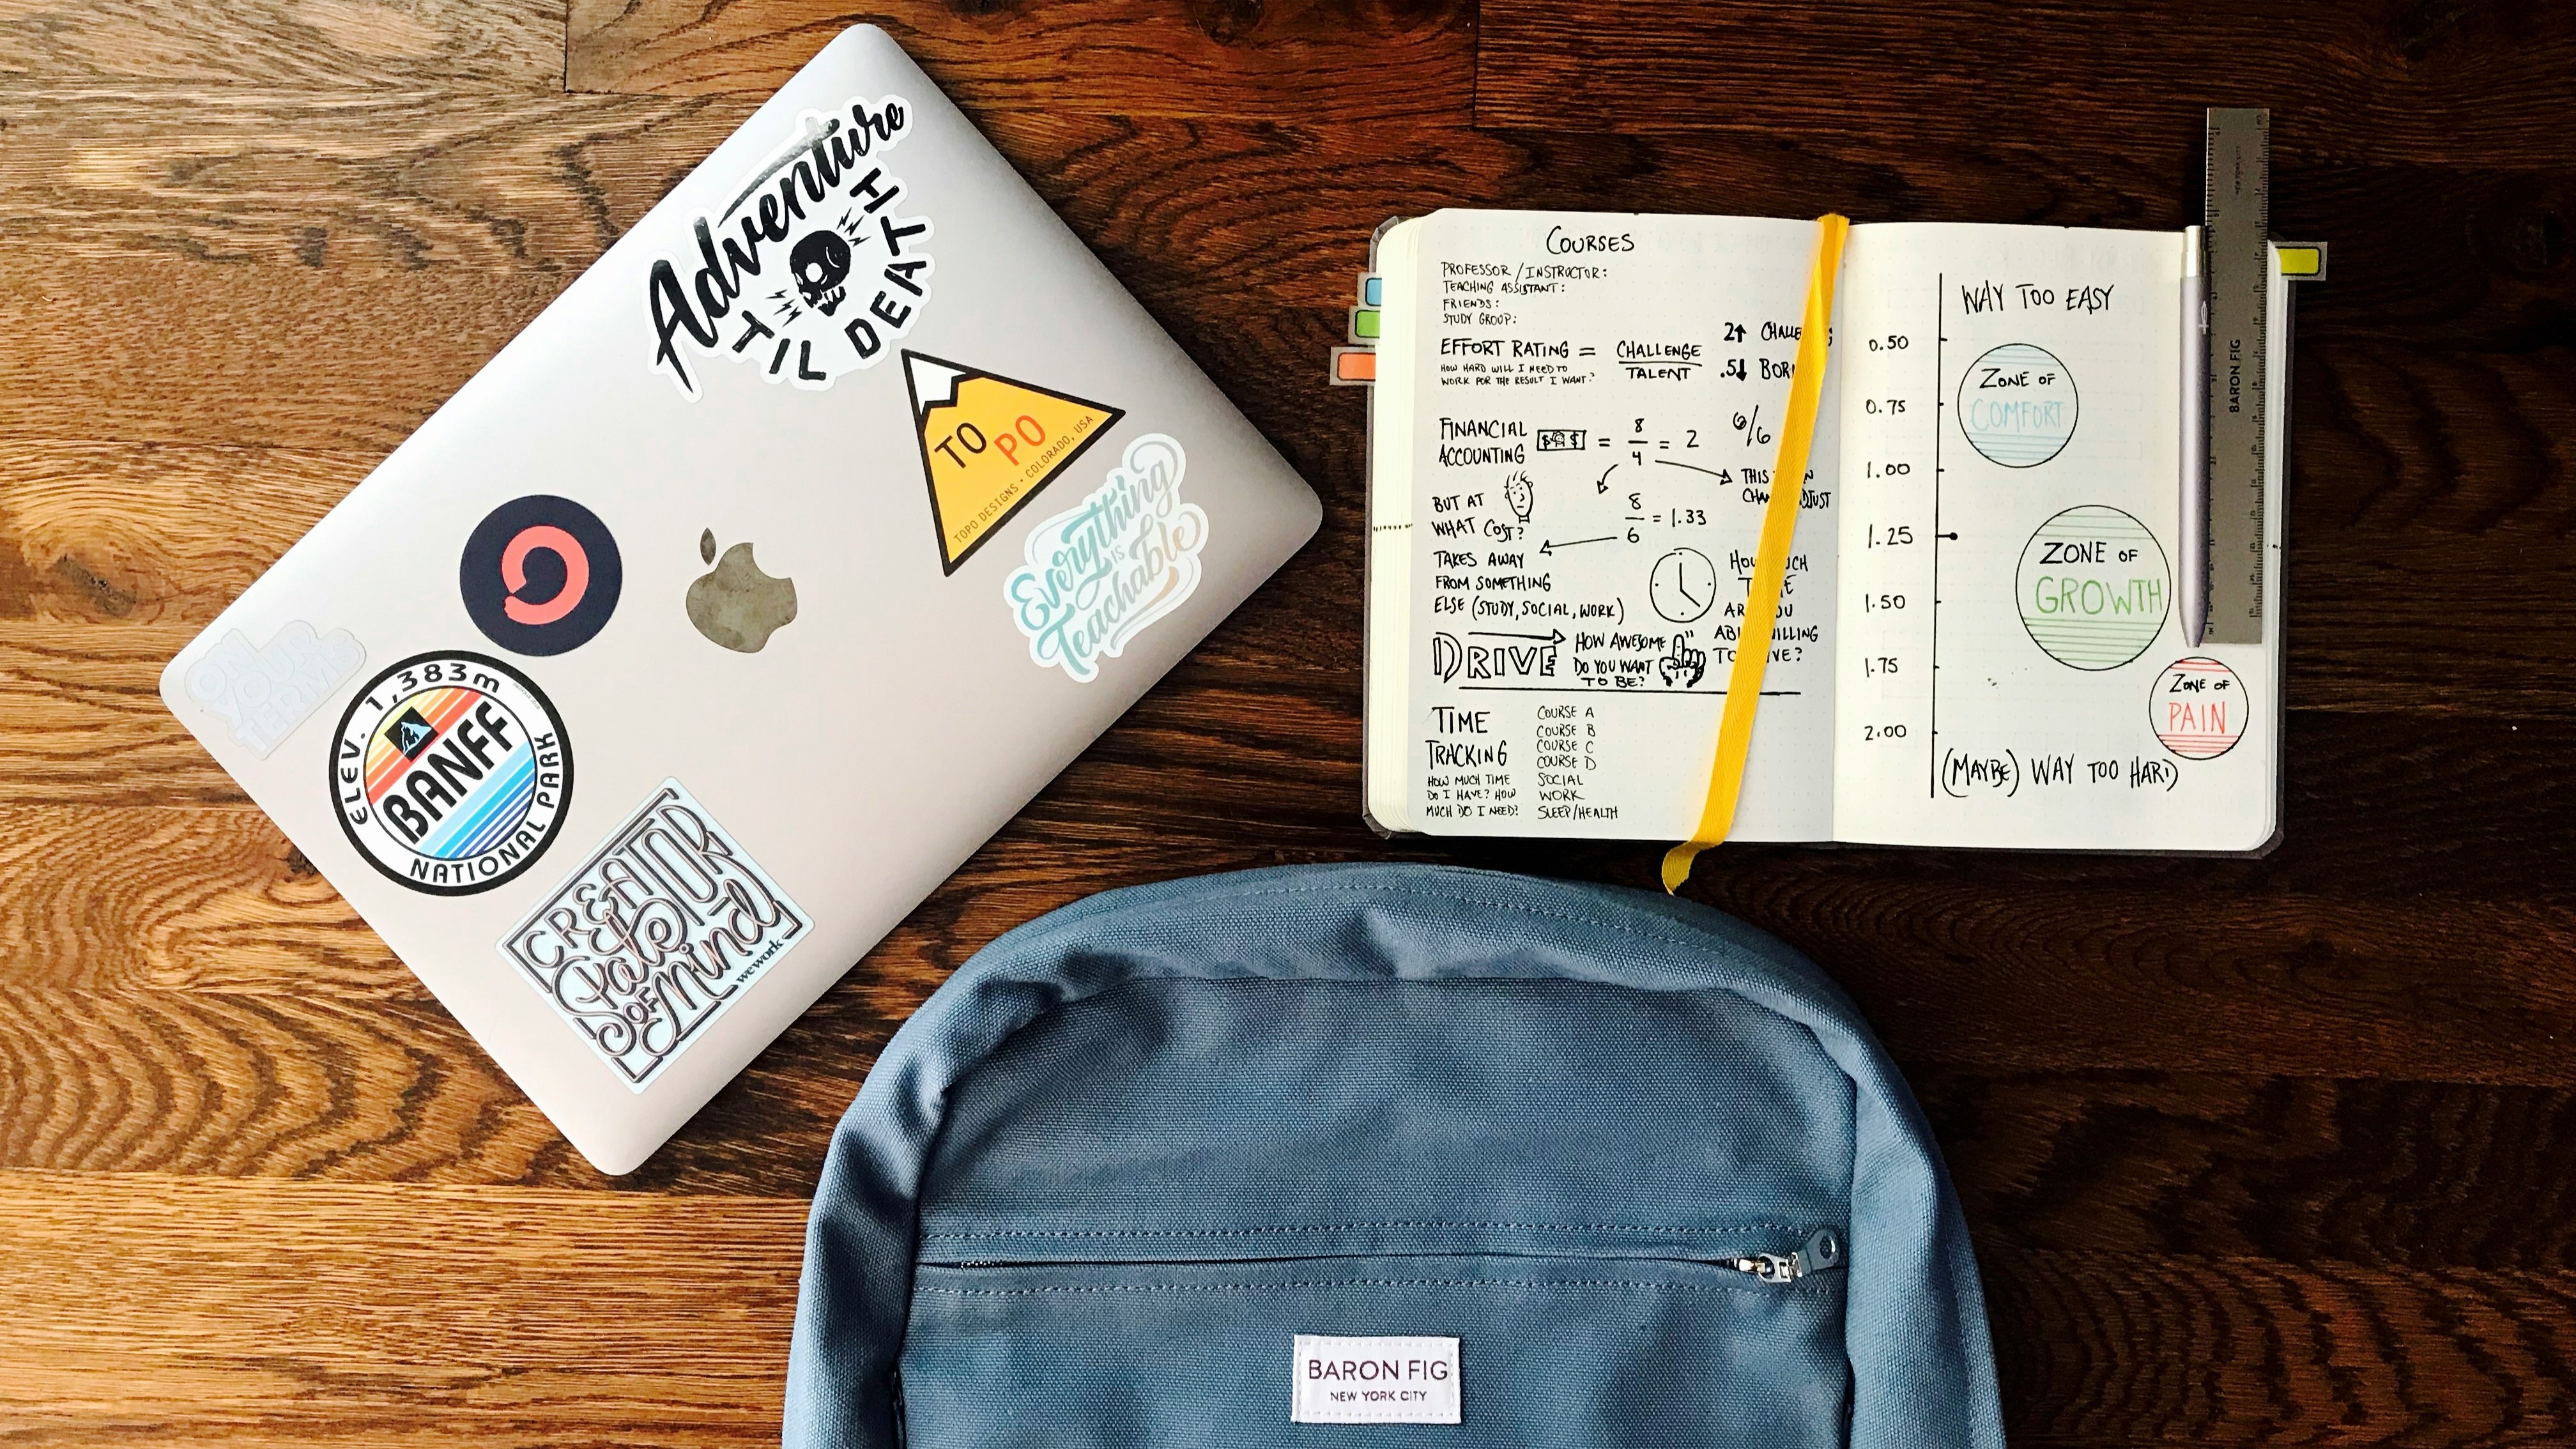 Adventure
'TIL DEATH
TO PO
TOPO DESIGNS • COLORADO, USA
Everything
IS
Teachable
ON
YOUR
TERMS
ELEV. 1,383m
BANFF
NATIONAL PARK
CREATOR
State
OF Mind
wework
COURSES
PROFESSOR/INSTRUCTOR:
TEACHING ASSISTANT:
FRIENDS:
STUDY GROUP:
EFFORT RATING = CHALLENGE
TALENT
HOW HARD WILL I NEED TO
WORK FOR THE RESULT I WANT?
2↑
.5↓
FINANCIAL
ACCOUNTING
$ $ = 8/4 = 2
6/6
THIS
BUT AT
WHAT COST?
8/6 = 1.33
TAKES AWAY
FROM SOMETHING
ELSE (STUDY, SOCIAL, WORK)
ARE YOU
DRIVE
HOW AWESOME
DO YOU WANT
TO BE?
TIME
TRACKING
HOW MUCH TIME
DO I HAVE? HOW
MUCH DO I NEED?
COURSE A
COURSE B
COURSE C
COURSE D
SOCIAL
WORK
SLEEP/HEALTH
WAY TOO EASY
0.50
ZONE OF
COMFORT
0.75
1.00
1.25
ZONE OF
GROWTH
1.50
1.75
ZONE OF
PAIN
2.00
(MAYBE) WAY TOO HARD
BARON FIG
BARON FIG
NEW YORK CITY